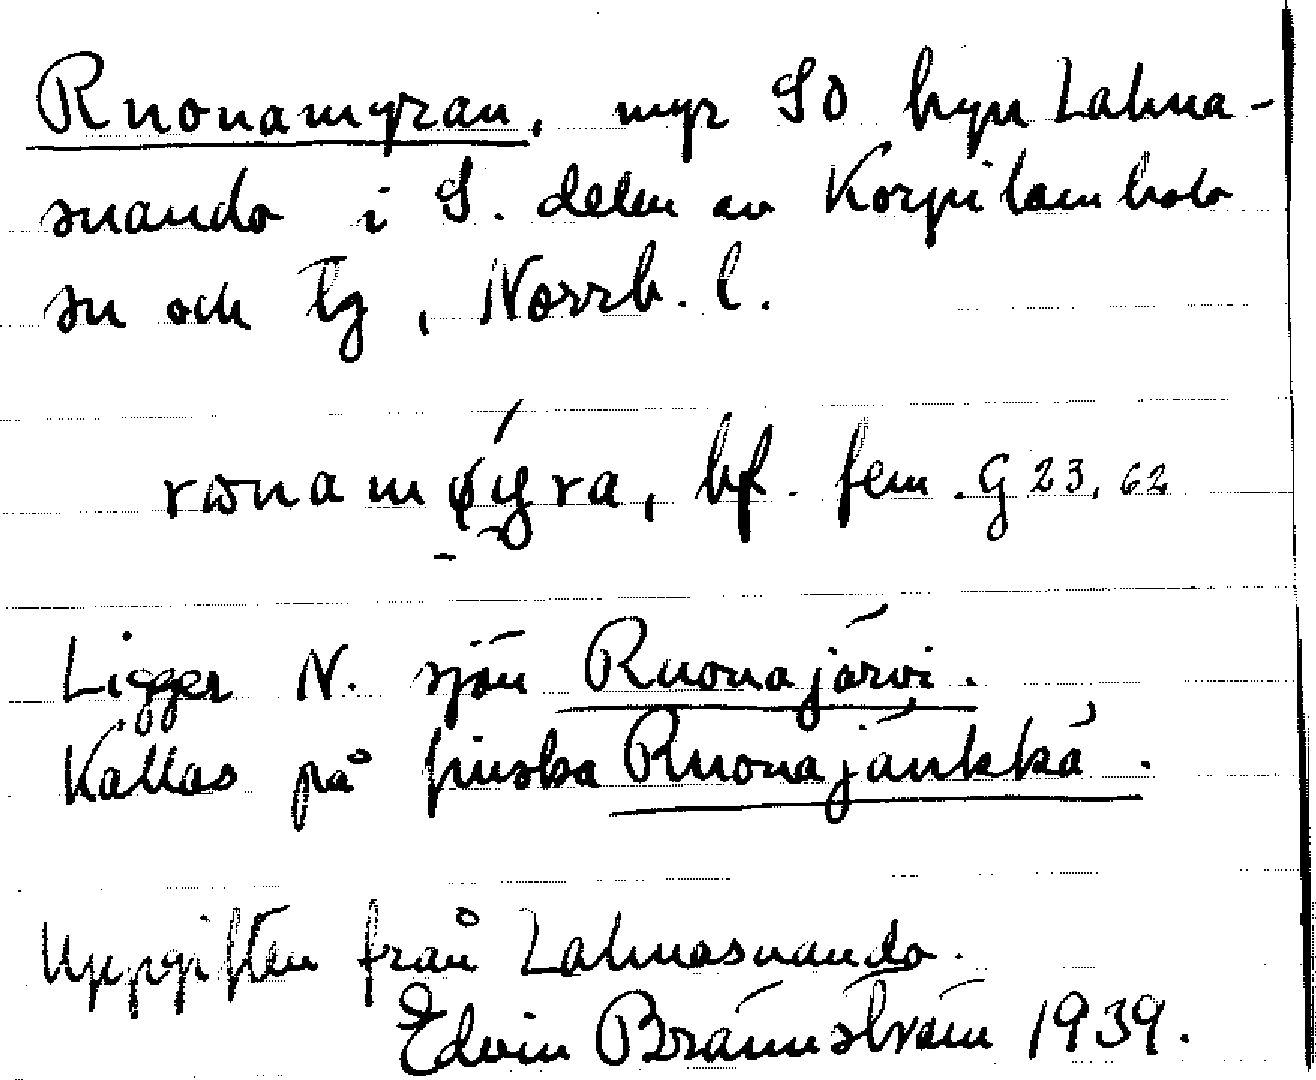 Ruonamyran, myr SO byn Lahna-
suando i S. delen av Korpilombolo
sn och tg, Norrb. l.
rωnamǿyra, bf. fem. G 23, 62
Ligger N. sjön Ruonajärvi.
Kallas på finska Ruonajänkkä.
Uppgiften från Lahnasuando.
Edvin Brännström 1939.